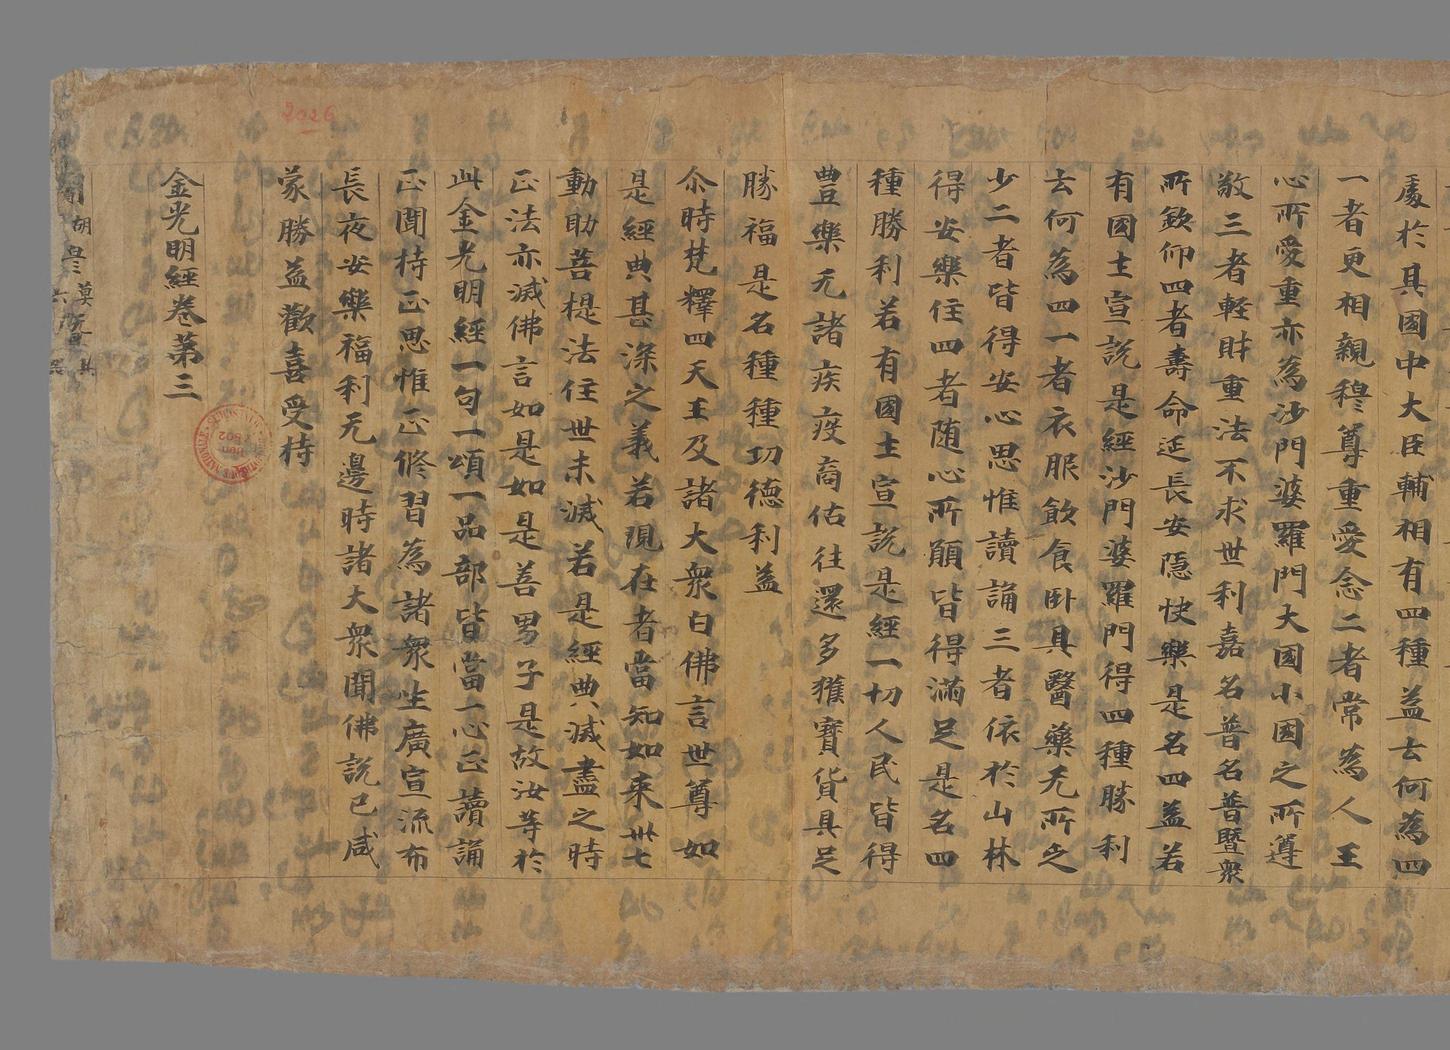 處於其國中大臣輔相有四種益云何為四
一者更相親穆尊重愛念二者常為人王
心所愛重亦為沙門婆羅門大國小國之所遵
敬三者輕財重法不求世利嘉名普名普暨衆
所欽仰四者壽命延長安隱快樂是名四益若
有國土宣說是經沙門婆羅門得四種勝利
云何為四一者衣服飲食卧具醫藥无所乏
少二者皆得安心思惟讀誦三者依於山林
得安樂住四者随心所願皆得滿足是名四
種勝利若有國土宣說是經一切人民皆得
豊樂无諸疾疫商估往還多獲寶貨具足
勝福是名種種功德利益
尒時梵釋四天王及諸大衆白佛言世尊如
是經典甚深之義若現在者當知如来卅七
動助菩提法住世未滅若是經典滅盡之時
正法亦滅佛言如是如是善男子是故汝等於
此金光明經一句一頌一品一部皆當一心正讀誦
正聞持正思惟正修習為諸衆生廣宣流布
長夜安樂福利无邊時諸大衆聞佛說已咸
蒙勝益歡喜受持
金光明經卷第三
2026